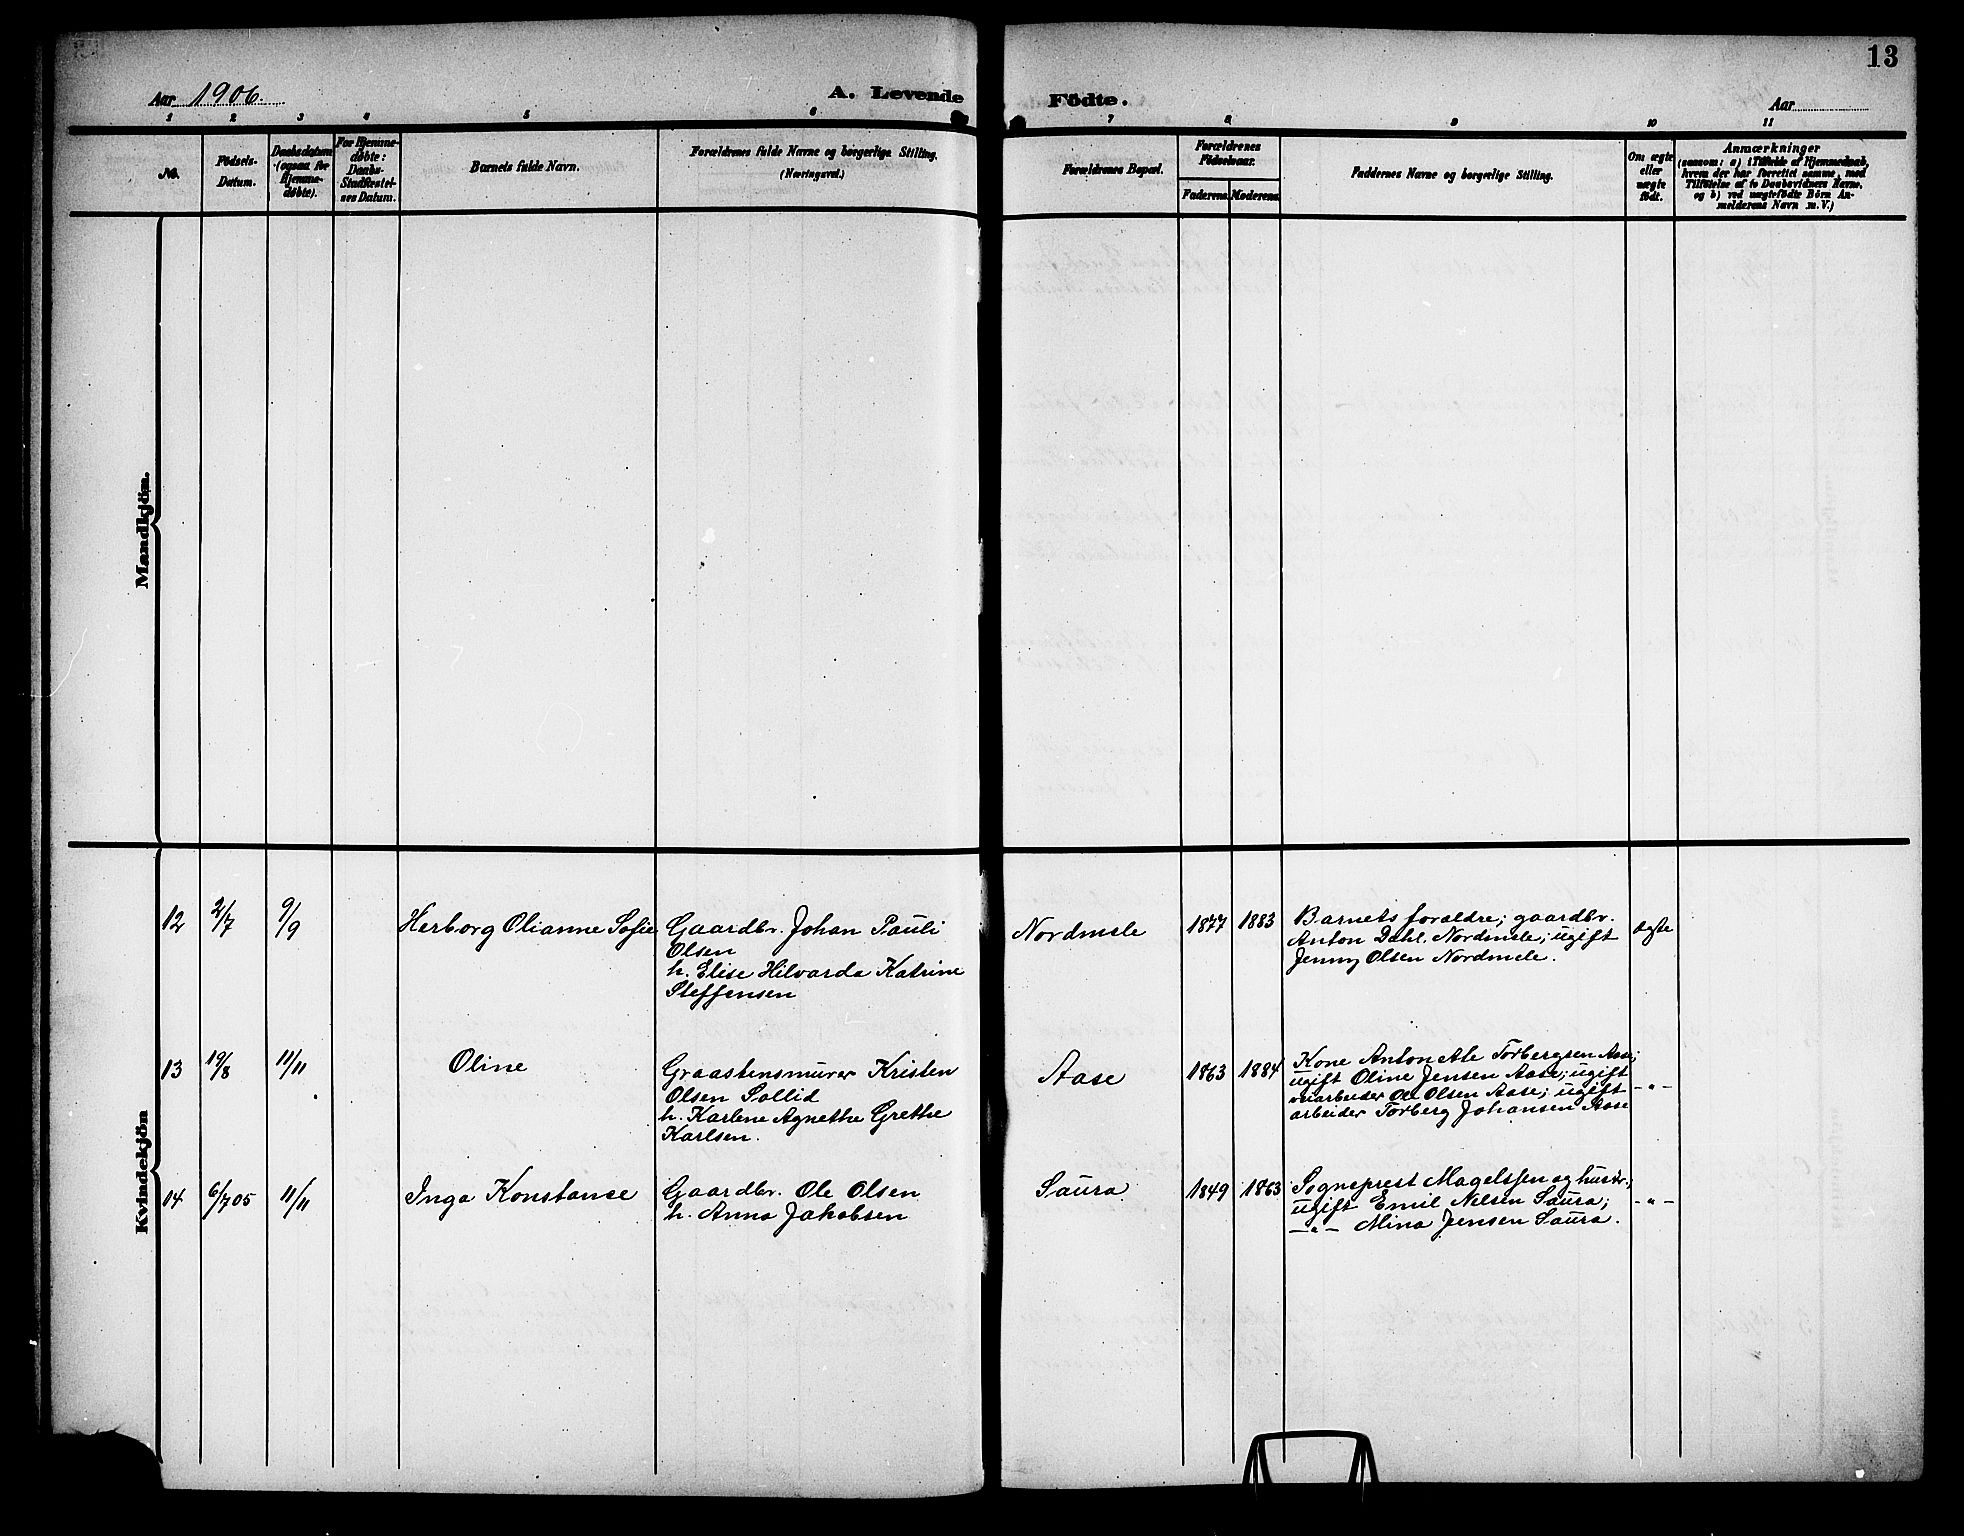 13
Aar 1906.
A. Levende Födte.
Aar
1 2 3 4 5 6 7 8 9 10 11
No.
Födsels-
Datum.
Daabsdatum
(ogsaa for
Hjemme-
døbte).
For Hjemme-
døbte:
Daabs-
Stadfæstel-
ses Datum.
Barnets fulde Navn.
Forældrenes fulde Navne og borgerlige Stilling.
(Næringsvei.)
Forældrenes Bopæl.
Forældrenes
Födselsaar.
Faderens Moderens
Faddernes Navne og borgerlige Stilling.
Om ægte
eller
uægte
født.
Anmærkninger
(saasom: a) i Tilfælde af Hjemmedaab,
hvem der har forrettet samme, med
Tilføielse af to Daabsvidners Navne,
og b) ved uægtefödte Börn An-
melderens Navn m. V.)
Mandkjön.
Kvindekjön
12 2/7 9/9 Herborg Olianne Sofie Gaardbr. Johan Pauli
Olsen
h. Elise Hilvarda Katrine
Steffensen
Nordmele 1877 1883 Barnets forældre; gaardbr.
Anton Dahl, Nordmele; ugift
Jenny Olsen Nordmele.
ægte
13 19/8 11/11 Oline Graastensmurer Kristen
Olsen Sollid
h. Karlene Agnethe Grethe
Karlsen.
Aase 1863 1884 Kone Antonette Torbergsen Aase;
ugift Oline Jensen Aase; ugift
veiarbeider Ole Olsen Aase; ugift
arbeider Torberg Johansen Aase
-"-
14 6/7 05 11/11 Inga Konstanse Gaardbr. Ole Olsen
h. Anna Jakobsen
Saura 1849 1863 Sogneprest Magelssen og hustr.;
ugift Emil Nilsen Saura;
-"- Mina Jensen Saura.
-"-